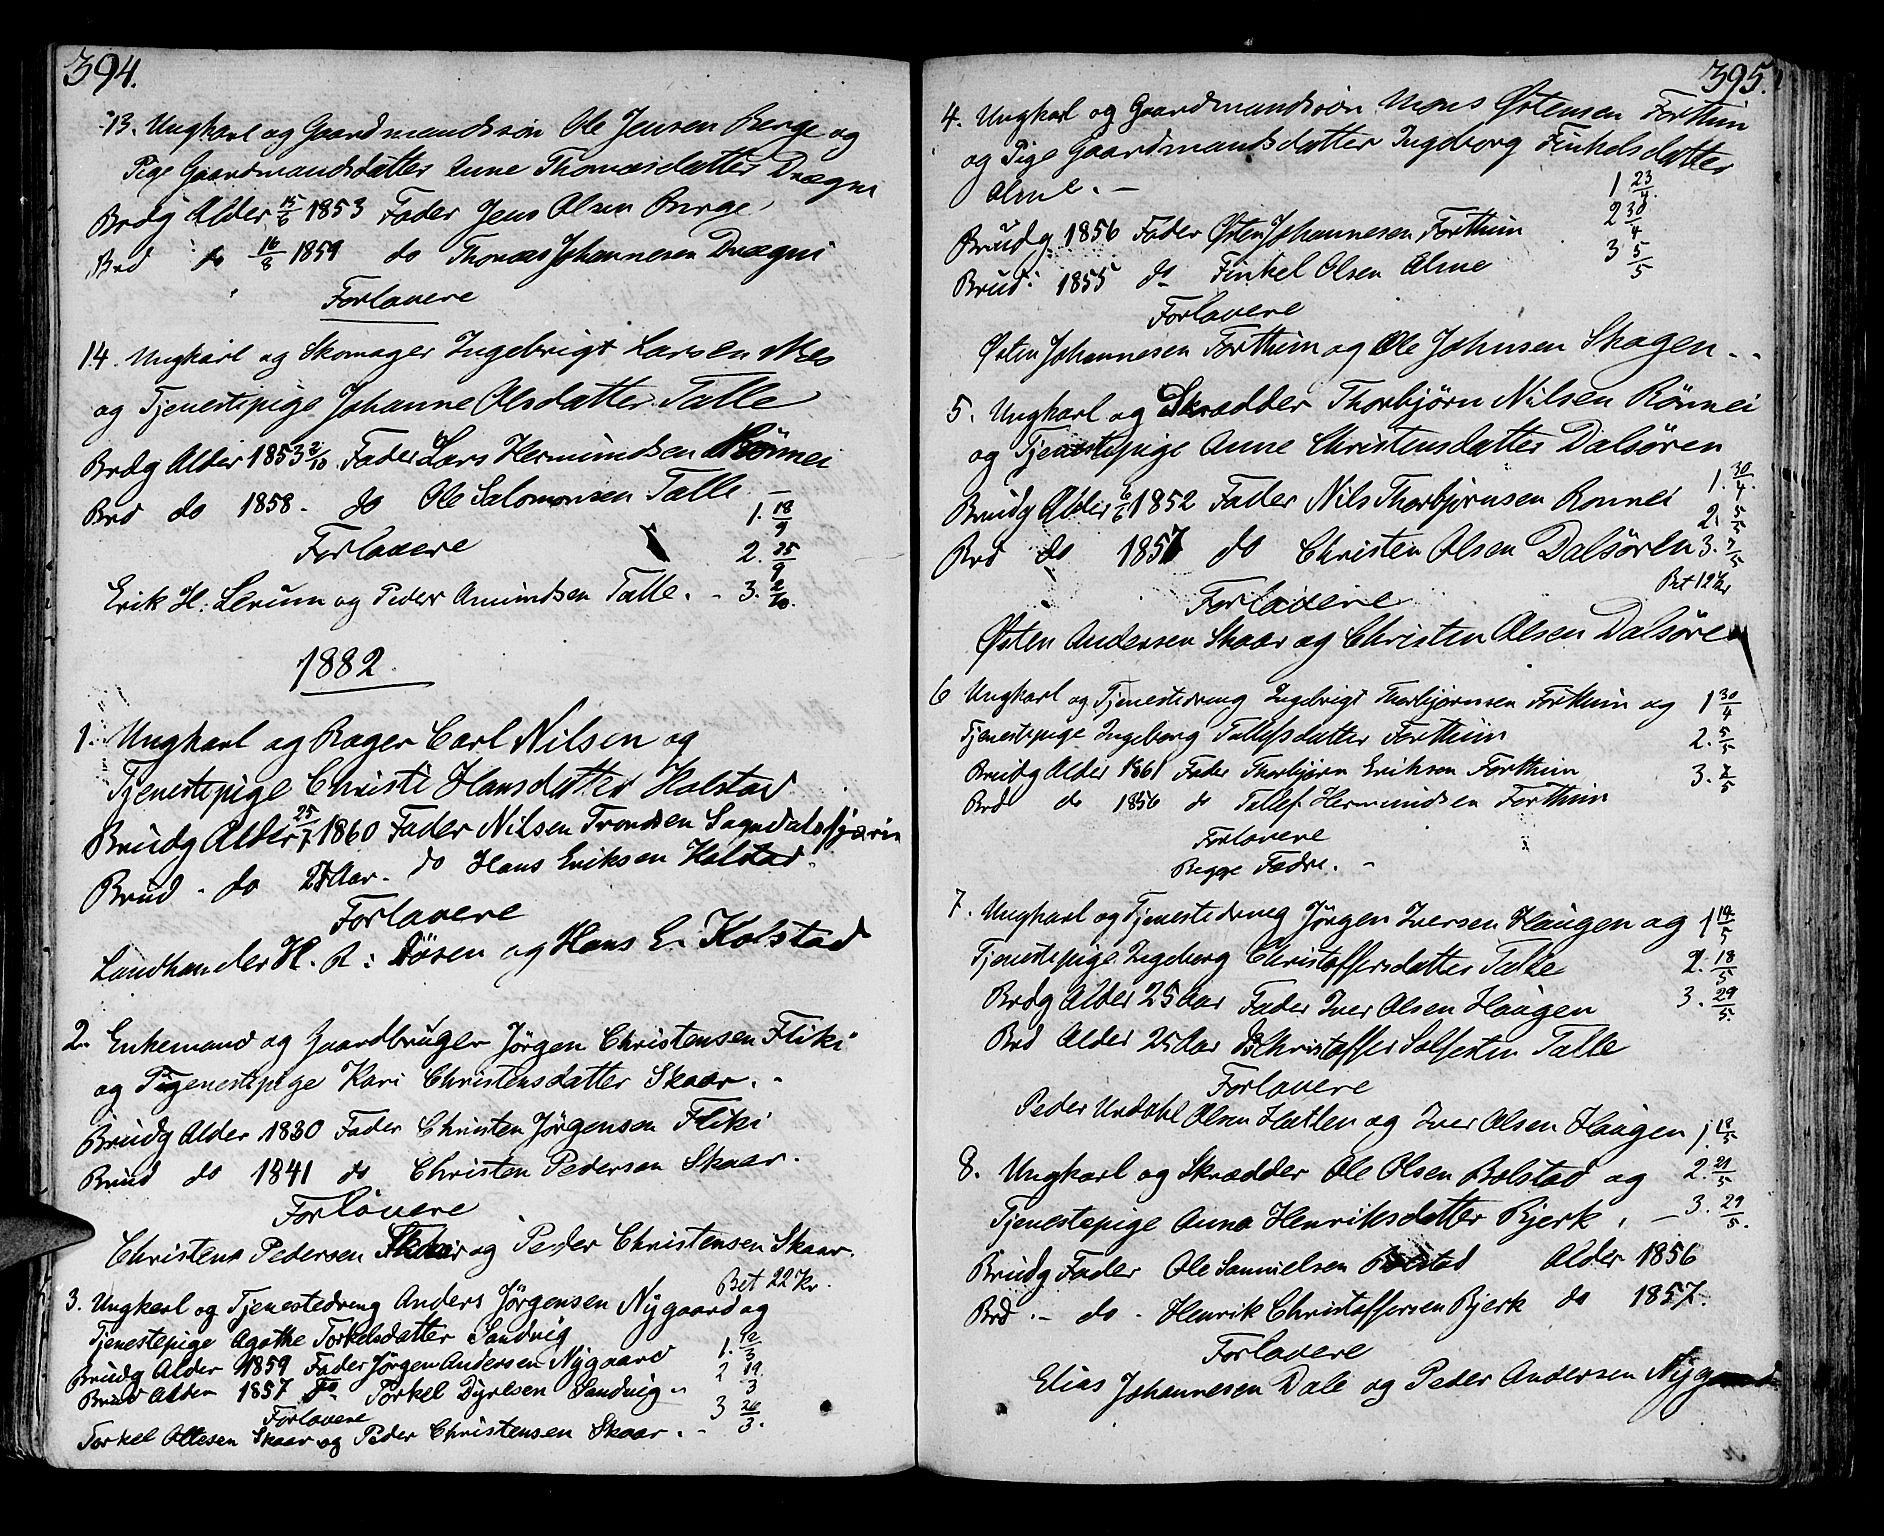 394.
13. Ungkarl og Gaardmandssøn Ole Jensen Berge og
Pige Gaardmandsdatter Anne Thomasdatter Drægni
Brdg Alder 15/6 1853 Fader Jens Olsen Berge
Brd do 16/8 1859 do Thomas Johannesen Drægni
Forlovere
14. Ungkarl og Skomager Ingebrigt Larsen Mes
og Tjenestepige Johanne Olsdatter Talle
Brdg Alder 1853 2/10 Fader Lars Hermundsen Rönnei
Brd do 1858 - do Ole Salomonsen Talle -
1. 18/9
Forlovere
2. 25/9
Erik H: Lerum og Peder Amundsen Talle. - 3. 2/10.
1882
1. Ungkarl og Bager Carl Nilsen og
Tjenestepige Christi Hansdatter Kolstad
Brudg Alder 25/7 1860 Fader Nilsen Trondsen Sogndalsfjæren
Brud - do 25 Aar - do Hans Eriksen Kolstad
Forlovere
Landhander H. R: Døsen og Hans E. Kolstad
2. Enkemand og Gaardbruger Jørgen Christensen Fliki
og Tjenestepige Kari Christensdatter Skaar. -
Brudg Alder 1830 Fader Christen Jørgensen Fliki
Brud do 1841 do Christen Pedersen Skaar.
Forlovere
Christen Pedersen Skaar og Peder Christensen Skaar.
Bet 22 Kr.
3. Ungkarl og Tjenestedreng Anders Jørgensen Nygaard og
Tjenestepige Agathe Torkelsdatter Sandvig
1. 12/3
Brudg Alder 1859 Fader Jørgen Andersen Nygaard
2 19/3
Brud Alder 1857 do Torkel Dyrlsen Sandvig -
Forlovere
3 26/3.
Torkel Ottesen Skaar og Peder Christensen Skaar. -
395.
4. Ungkarl og Gaardmandssøn Mons Østensen Forthun
og Pige Gaardmandsdatter Ingeborg Finkelsdatter
Alme. -
1 23/4.
2 30/4
Brudg 1856 Fader Østen Johannesen Forthun
3 5/5
Brud: 1855 do Finkel Olsen Alme
Forlovere
Østen Johannesen Forthun og Ole Johnsen Skagen - .
5. Ungkarl og Skrædder Thorbjørn Nilsen Rönnei
og Tjenestepige Anne Christensdatter Dalsören
1. 30/4.
Brudg Alder 6/6 1852 Fader Nils Thorbjørnsen Ronnei
2. 5/5
Brd do 1857 do Christen Olsen Dalsören 3. 7/5
Bet 12 Kr
Forlovere
Østen Andersen Skaar og Christen Olsen Dalsøren
6 Ungkarl og Tjenestedreng Ingebrigt Thorbjørnsen Forthun og 1 30/4
Tjenestepige Ingeborg Tollefsdatter Forthun
2. 5/5
Brudg Alder 1861 Fader Thorbjørn Eriksen Forthun
3. 7/5
Brd do 1856 do Tollef Hermundsen Forthun
Forlovere
Begge Fædre. -
7. Ungkarl og Tjenestedreng Jørgen Iversen Haugen og 1 14/5
Tjenestepige Ingeborg Christoffersdatter Talle
2. 18/5
Brdg Alder 25 Aar Fader Iver Olsen Haugen
3. 29/5.
Brd Alder 25 Aar do Christoffer Talle
Forlovere
Peder Undahl Olsen Hatlen og Iver Olsen Haugen 1 18/5
8. Ungkarl og Skrædder Ole Olsen Bolstad og 2. 21/5
Tjenestepige Anna Henriksdatter Bjerk. - 3. 29/5.
Brudg Fader Ole Samuelsen Bolstad Alder 1856
Brd. - do - Henrik Christoffersen Bjerk do 1857.
Forlovere
Elias Johannesen Dale og Peder Andersen Nygaard